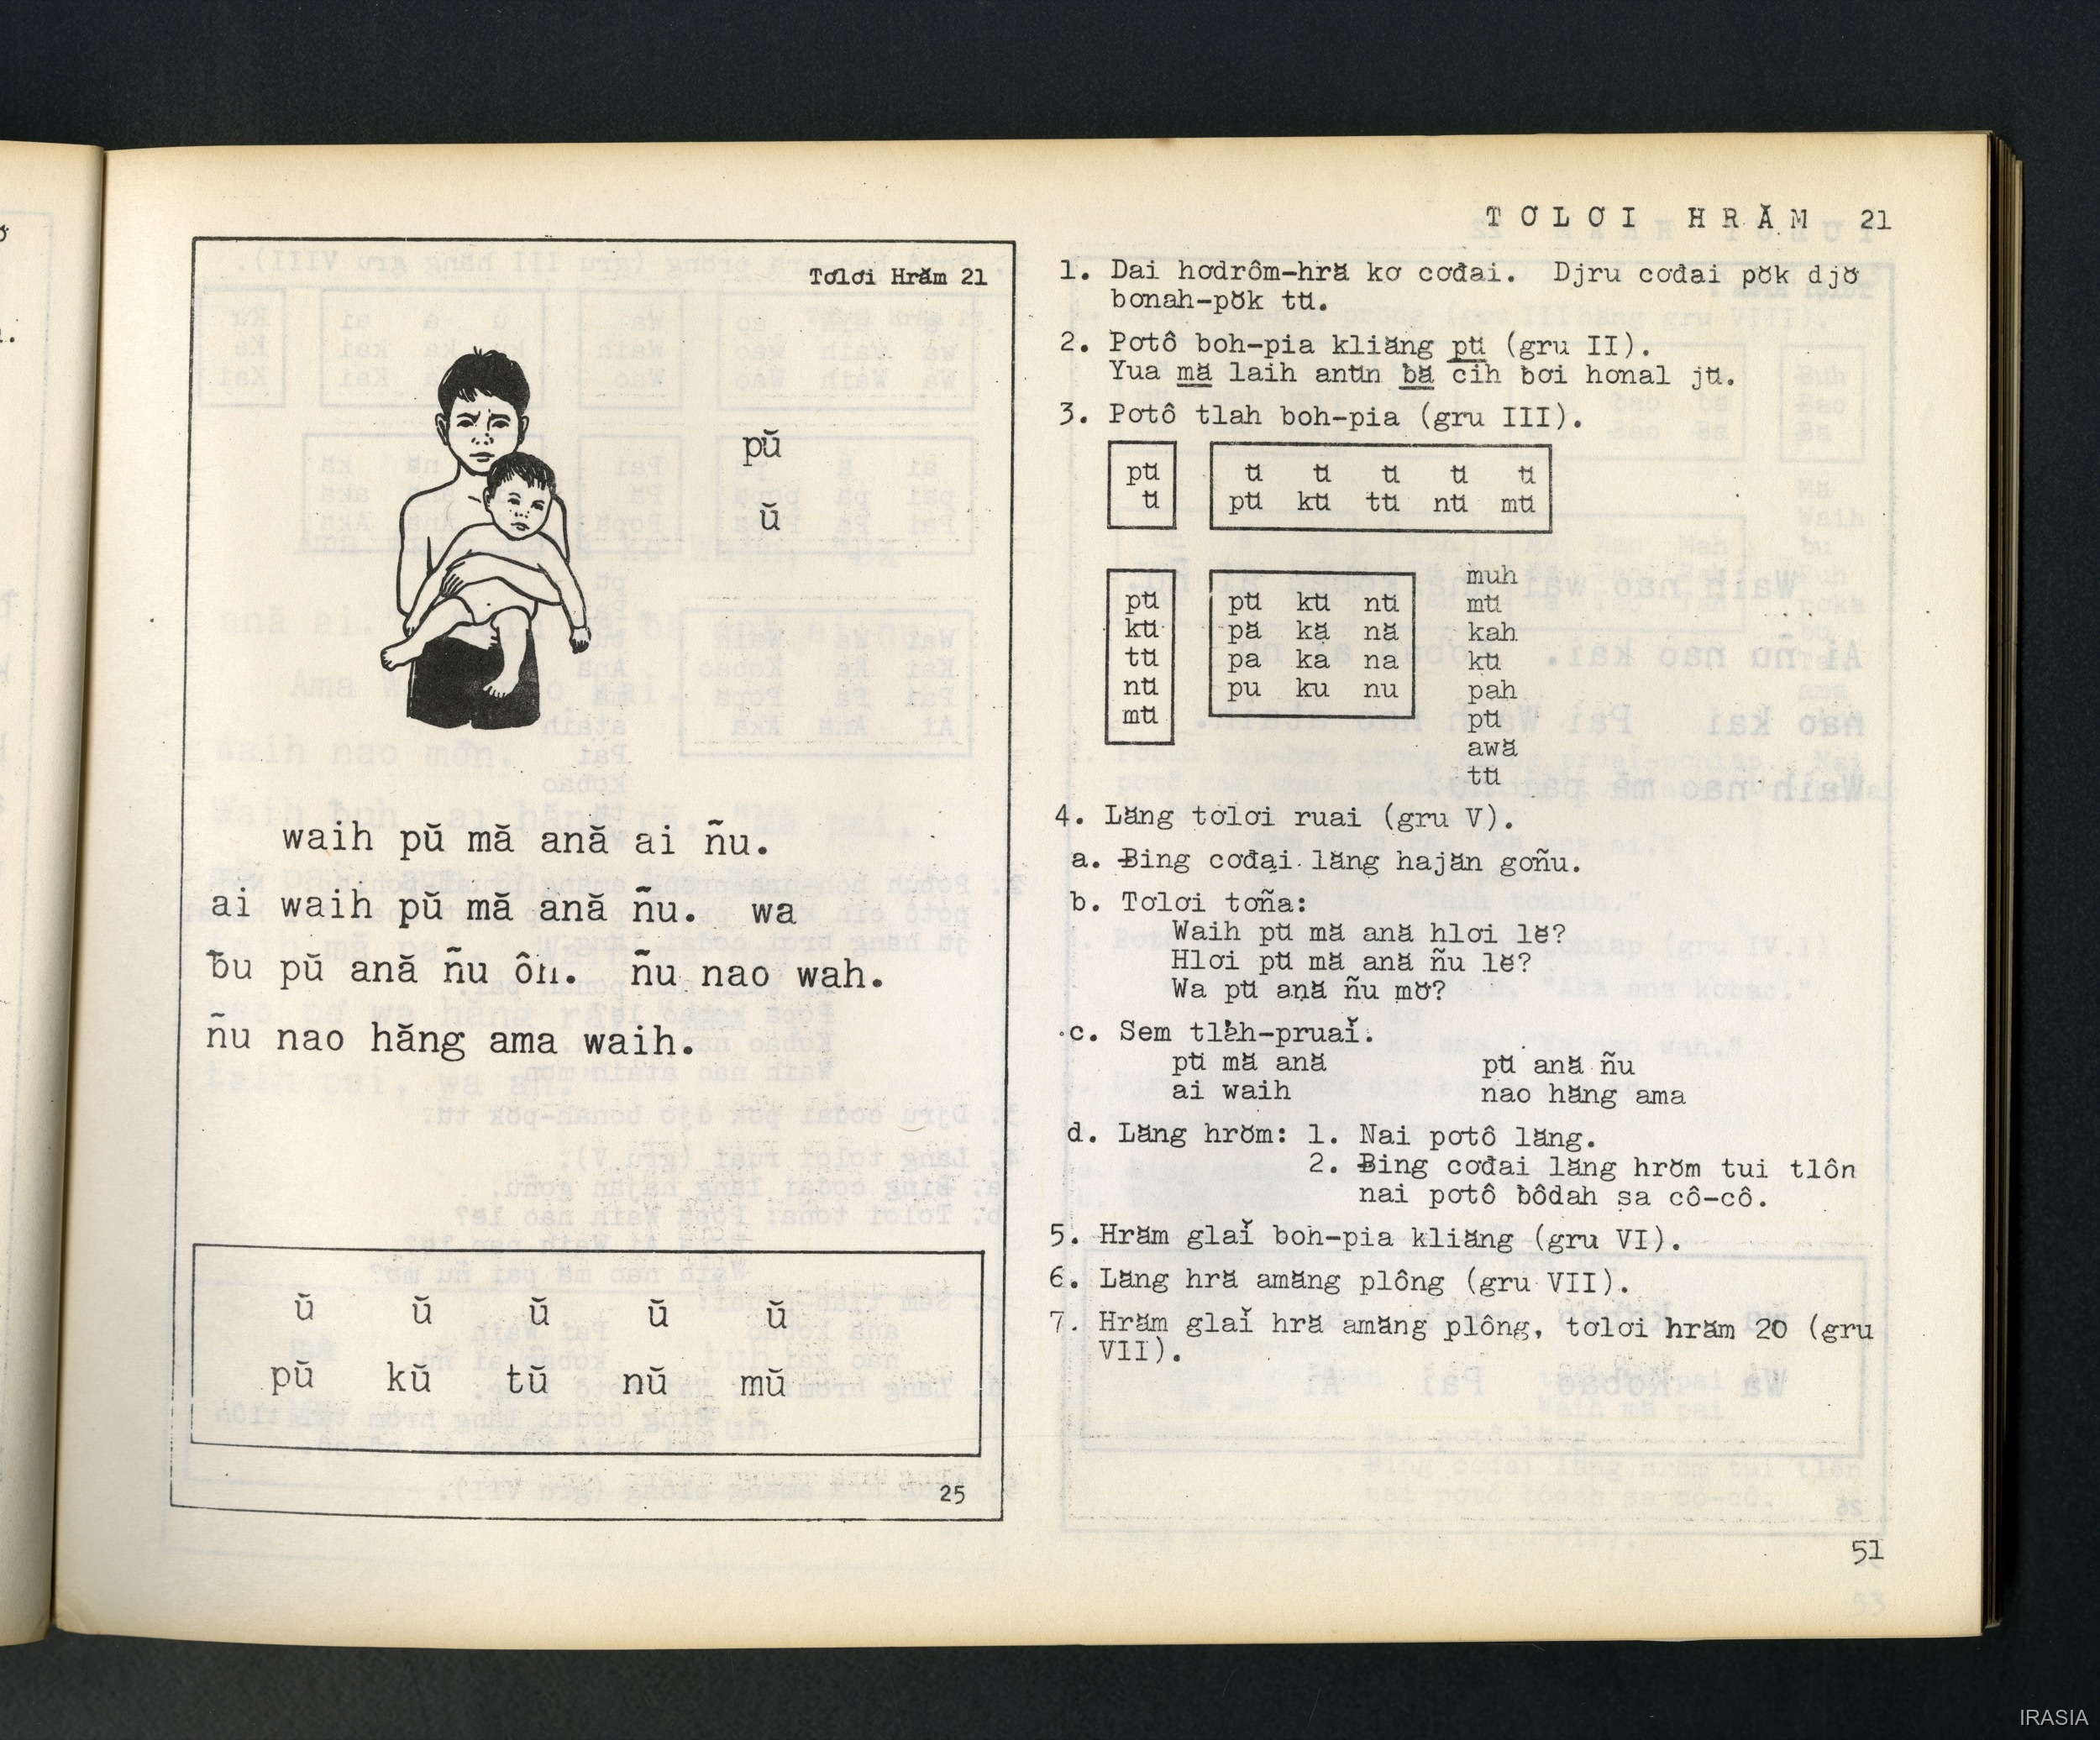 Tơlơi Hrăm 21
pŭ
ŭ
waih pŭ mă ană ai ñu.
ai waih pŭ mă ană ñu. wa
ƀu pŭ ană ñu ôh. ñu nao wah.
ñu nao hăng ama waih.
ŭ ŭ ŭ ŭ ŭ
pŭ kŭ tŭ nŭ mŭ
25
TƠLƠI HRĂM 21
1. Dai hơdrôm-hră kơ cơđai. Djru cơđai pŏk djơ̆
bơnah-pŏk tŭ.
2. Pơtô boh-pia kliăng pŭ (gru II).
Yua mă laih anŭn ƀă cih ƀơi hơnal jŭ.
3. Pơtô tlah boh-pia (gru III).
pŭ
ŭ
ŭ ŭ ŭ ŭ ŭ
pŭ kŭ tŭ nŭ mŭ
pŭ
kŭ
tŭ
nŭ
mŭ
pŭ kŭ nŭ
pă kă nă
pa ka na
pu ku nu
muh
mŭ
kah
kŭ
pah
pŭ
awă
tŭ
4. Lăng tơlơi ruai (gru V).
a. Ƀing cơđai lăng hajăn gơñu.
b. Tơlơi tơña:
Waih pŭ mă ană hlơi lĕ?
Hlơi pŭ mă ană ñu lĕ?
Wa pŭ ană ñu mơ̆?
c. Sem tlăh-pruaĭ.
pŭ mă ană pŭ ană ñu
ai waih nao hăng ama
d. Lăng hrŏm: 1. Nai pơtô lăng.
2. Ƀing cơđai lăng hrŏm tui tlôn
nai pơtô ƀôdah sa cô-cô.
5. Hrăm glaĭ boh-pia kliăng (gru VI).
6. Lăng hră amăng plông (gru VII).
7. Hrăm glaĭ hră amăng plông, tơlơi hrăm 20 (gru
VII).
51
IRASIA